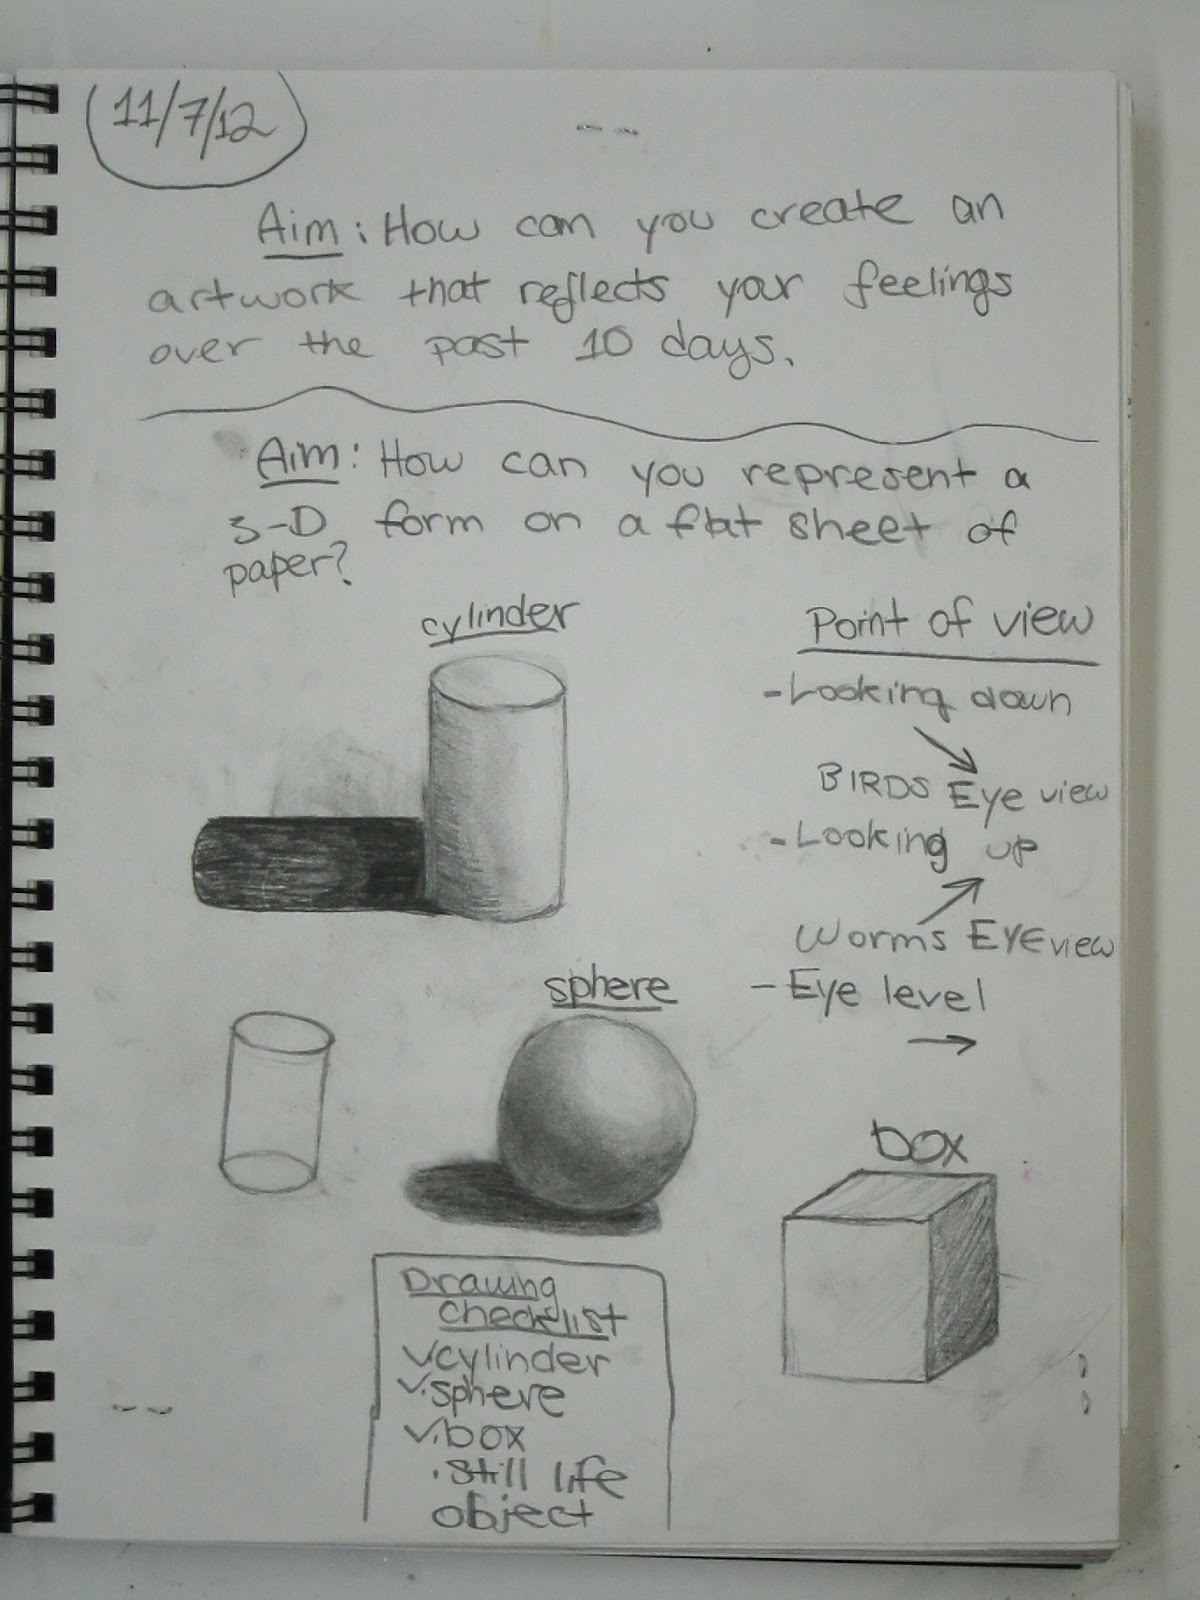 11/7/12
Aim: How can you create an
artwork that reflects your feelings
over the past 10 days.
Aim: How can you represent a
3-D form on a flat sheet of
paper?
cylinder
Point of view
- Looking down
BIRDS Eye view
- Looking up
Worms EYE view
- Eye level
sphere
box
Drawing
checklist
✓cylinder
✓.sphere
✓.box
.still life
object